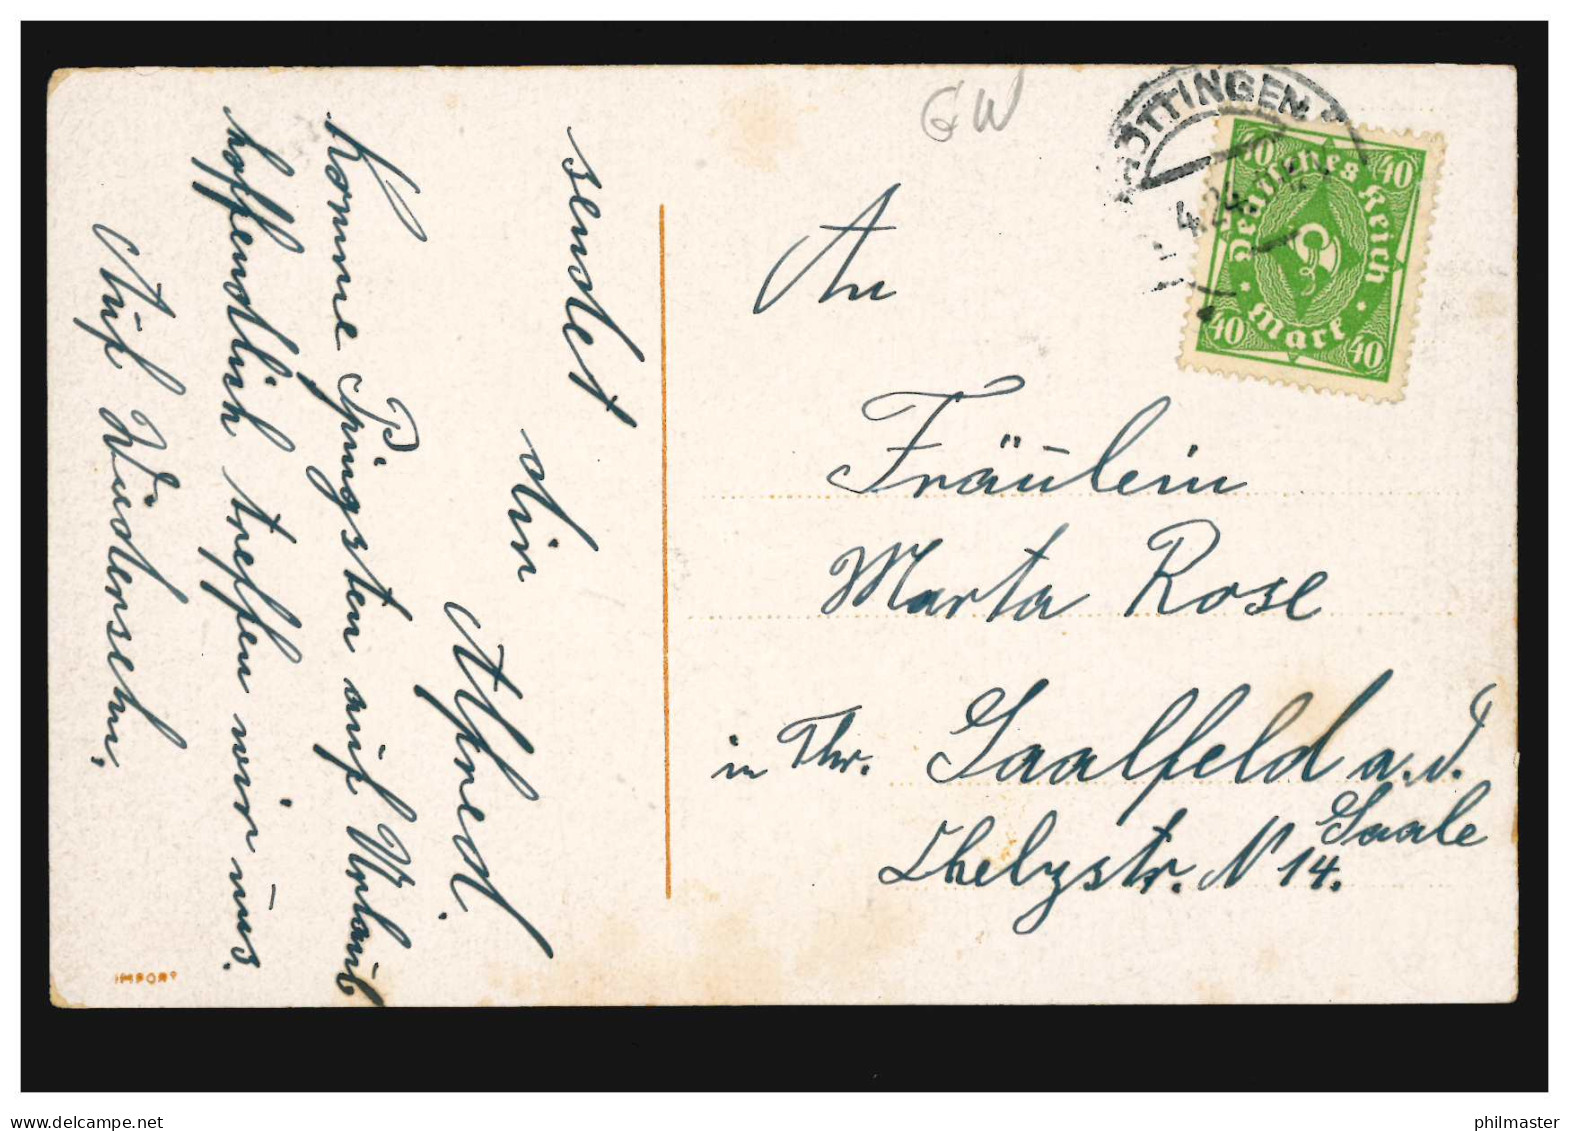 GW
GÖTTINGEN
4.24
40
40
40
40
Deutsches Reich
Mark
sendet
dir
Alfred.
Komme Pfingsten auf Urlaub
hoffendlich treffen wir uns.
Auf Wiedersehn.
IMPORT
An
Fräulein
Marta Rose
in Thr. Saalfeld a.d.
Saale
str. N 14.
www.delcampe.net
philmaster